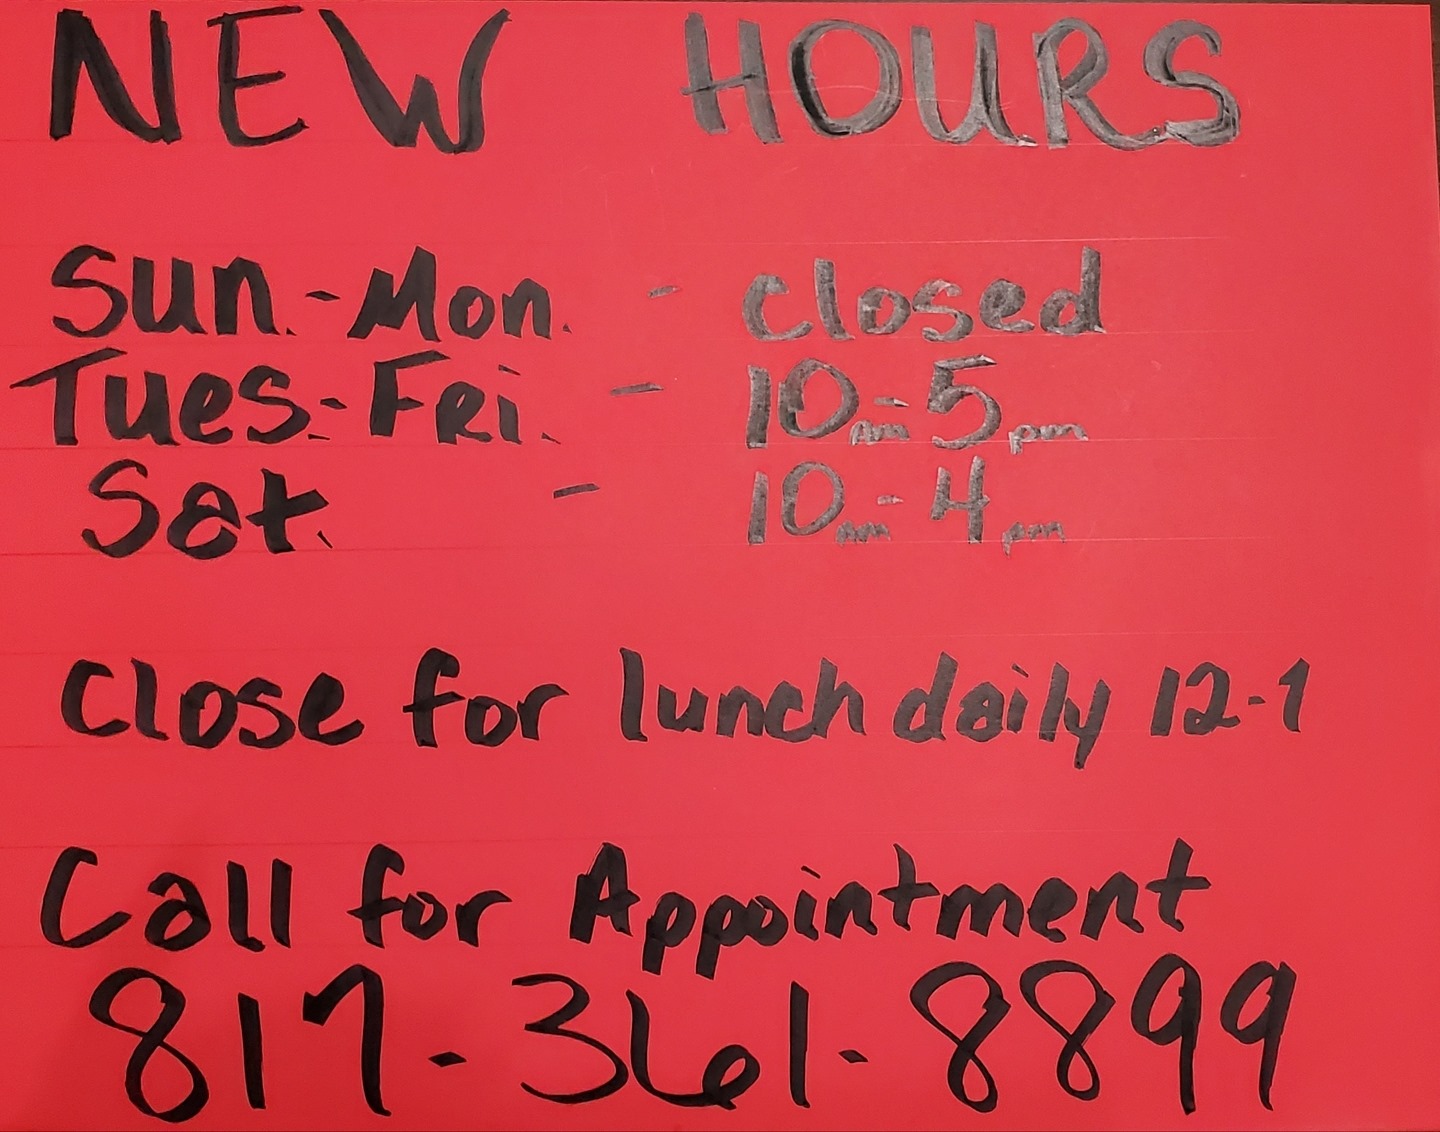 NEW HOURS
Sun.-Mon. - Closed
Tues.-Fri. - 10am-5pm
Sat. - 10am-4pm
Close for lunch daily 12-1
Call for Appointment
817-361-8899